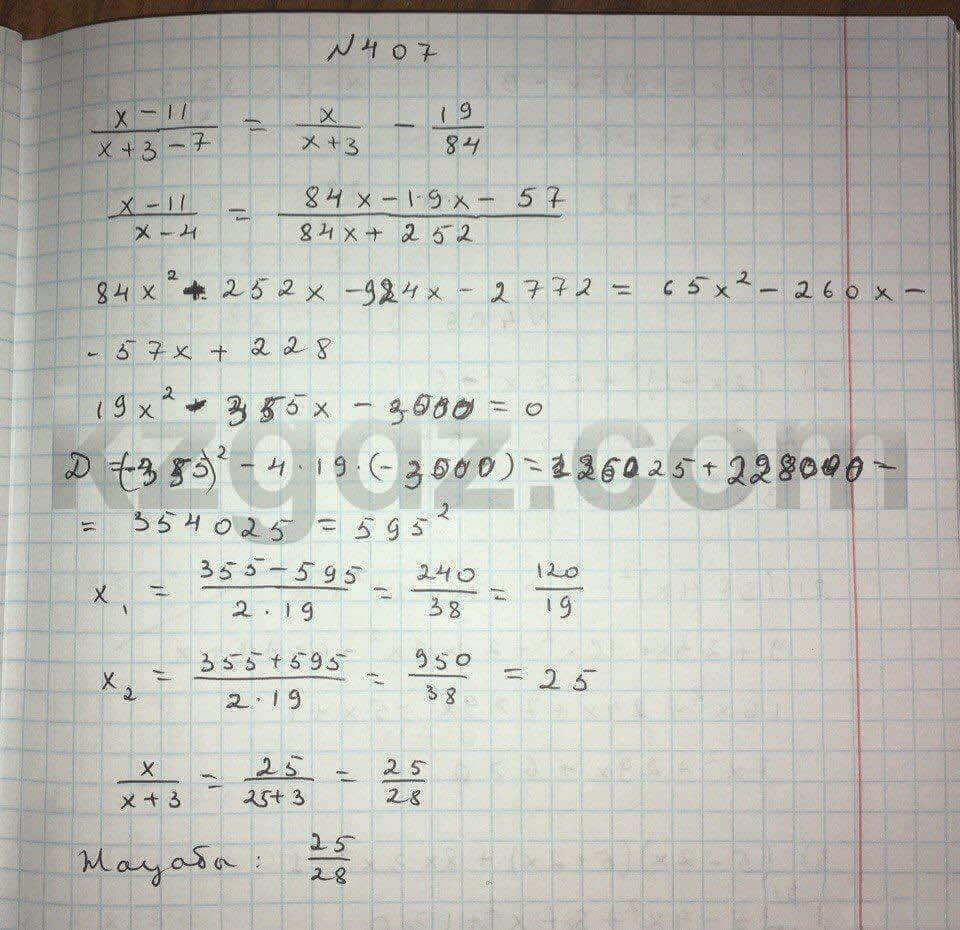 N 407
x-11/x+3-7 = x/x+3 - 19/84
x-11/x-4 = 84x-19x-57/84x+252
84x² + 252x - 924x - 2772 = 65x² - 260x -
- 57x + 228
19x² - 355x - 3000 = 0
D = (-355)² - 4·19·(-3000) = 126025 + 228000 =
= 354025 = 595²
x₁ = 355-595/2·19 = 240/38 = 120/19
x₂ = 355+595/2·19 = 950/38 = 25
x/x+3 = 25/25+3 = 25/28
Жауабы: 25/28
kzgdz.com